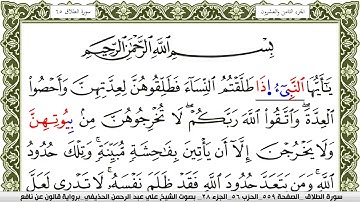 سورة الطلاق ٦٥
الجزء الثامن والعشرون
بِسْمِ اللَّهِ الرَّحْمَٰنِ الرَّحِيمِ
يَٰٓأَيُّهَا النَّبِيٓءُ إِذَا طَلَّقْتُمُ النِّسَآءَ فَطَلِّقُوهُنَّ لِعِدَّتِهِنَّ وَأَحْصُوا
الْعِدَّةَ وَاتَّقُوا اللَّهَ رَبَّكُمْ لَا تُخْرِجُوهُنَّ مِنۢ بِيُوتِهِنَّ
وَلَا يَخْرُجْنَ إِلَّآ أَن يَأْتِينَ بِفَٰحِشَةٍ مُّبَيِّنَةٍ وَتِلْكَ حُدُودُ
اللَّهِ وَمَن يَتَعَدَّ حُدُودَ اللَّهِ فَقَدْ ظَلَمَ نَفْسَهُ لَا تَدْرِي لَعَلَّ
سورة الطلاق الصفحة ٥٥٩ الحزب ٥٦ الجزء ٢٨ بصوت الشيخ علي عبد الرحمن الحذيفي برواية قالون عن نافع